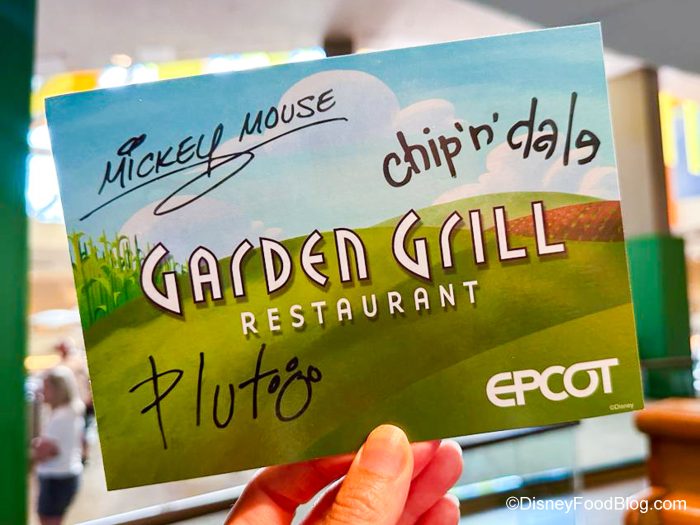 MICKEY MOUSE
chip 'n' dale
GARDEN GRILL
RESTAURANT
Pluto
EPCOT
©Disney
©DisneyFoodBlog.com